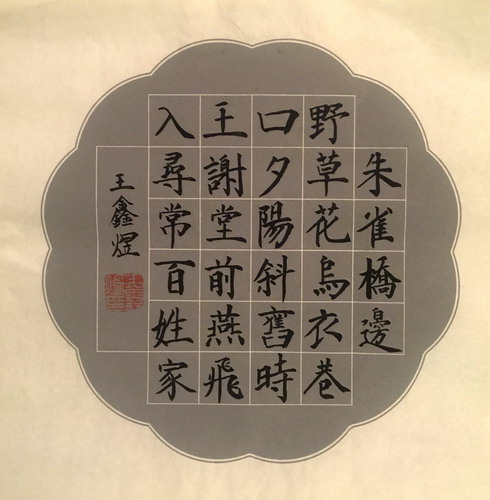 朱雀橋邊
野草花烏衣巷
口夕陽斜舊時
王謝堂前燕飛
入尋常百姓家
王鑫煜